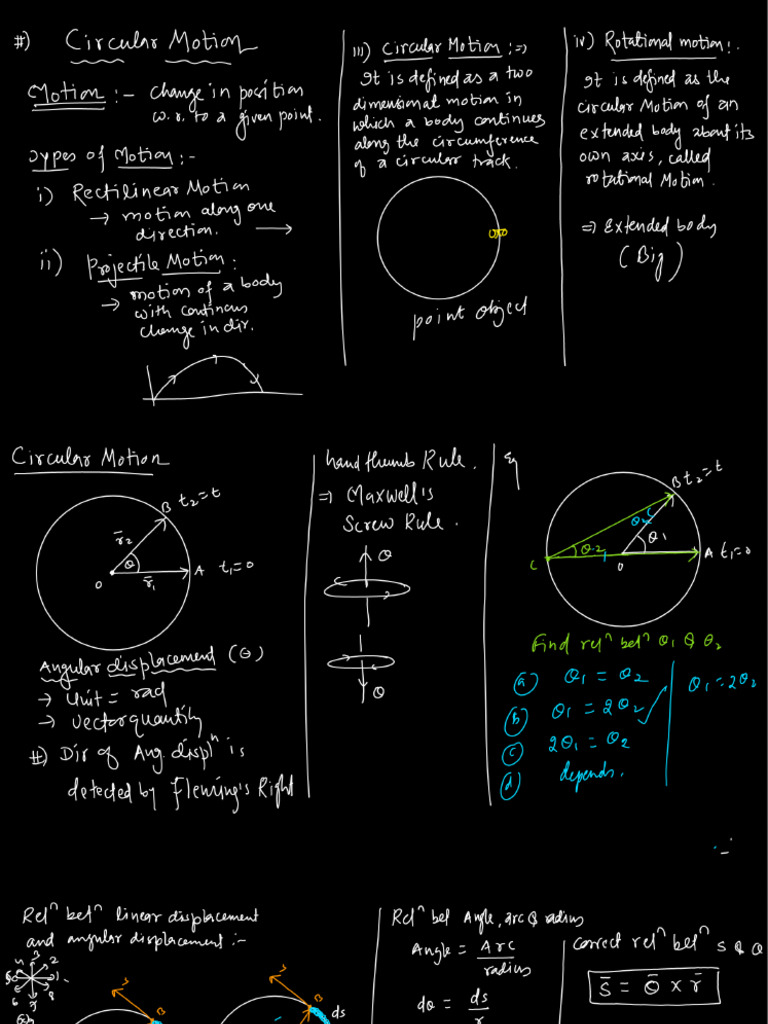 #) Circular Motion
Motion :- change in position
w.r. to a given point.
Types of Motion :-
i) Rectilinear Motion
→ motion along one
direction. →
ii) Projectile Motion :
→ motion of a body
with continous
change in dir.
iii) Circular Motion :=>
It is defined as a two
dimensional motion in
which a body continues
along the circumference
of a circular track.
point object
iv) Rotational motion :.
It is defined as the
circular Motion of an
extended body about its
own axis, called
rotational Motion.
=> Extended body
(Big)
Circular Motion
B t₂=t
r̄₂
θ
O
r̄₁
A t₁=0
Angular displacement (θ)
→ Unit = rad
→ vector quantity
#) Dir of Ang. displⁿ is
detected by Fleming's Right
hand thumb Rule.
=> Maxwell's
Screw Rule.
θ
θ
Eg
B t₂=t
θ₁
θ₂
C
O
A t₁=0
Find relⁿ betⁿ θ₁ & θ₂
(a) θ₁ = θ₂
(b) θ₁ = 2θ₂ ✓
(c) 2θ₁ = θ₂
(d) depends.
θ₁ = 2θ₂
Relⁿ betⁿ linear displacement
and angular displacement :-
B
B
ds
Relⁿ bet Angle, arc & radius
Angle = Arc
radius
dθ = ds
r
correct relⁿ betⁿ S & θ
S̄ = θ̄ × r̄